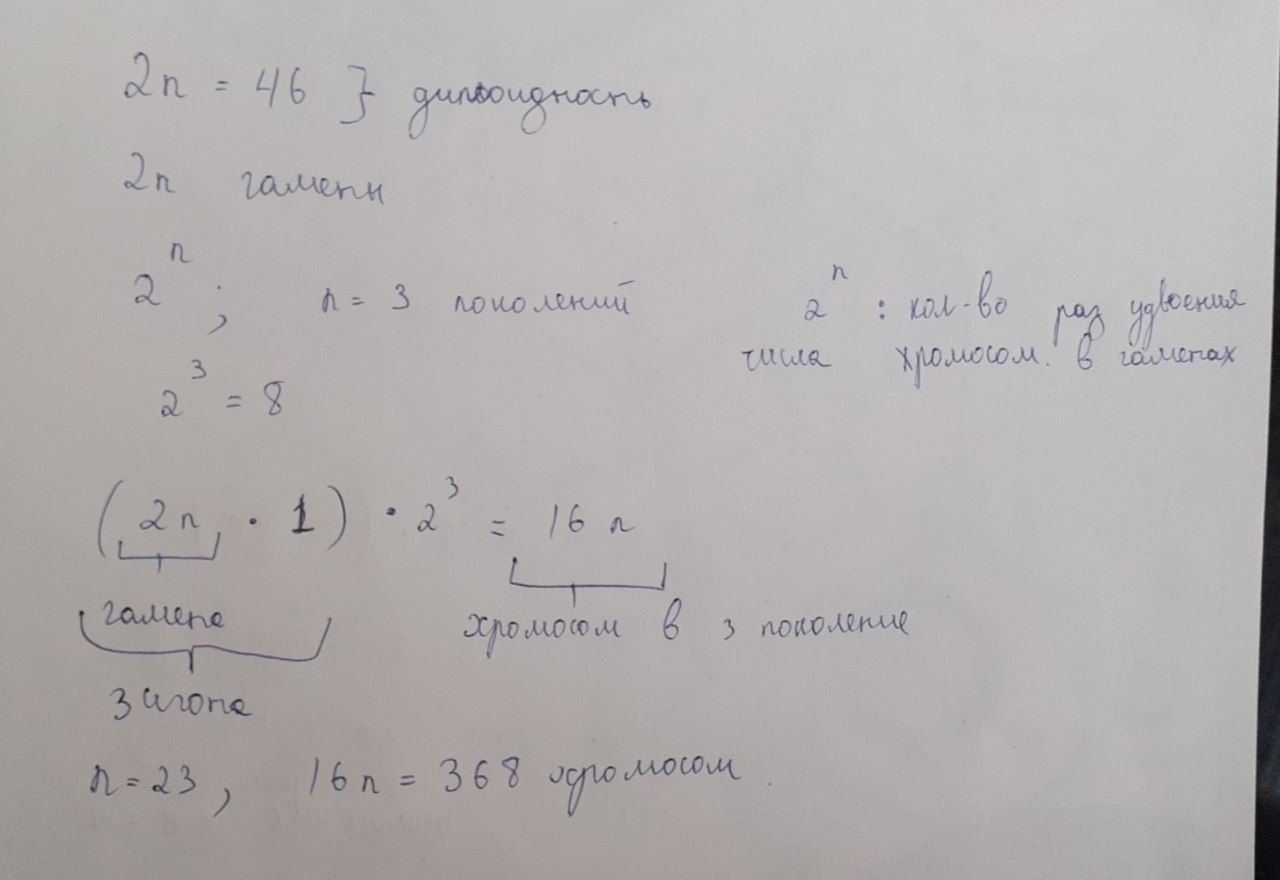 2n = 46 } диплоидность
2n гаметы
2ⁿ ; n = 3 поколений
2ⁿ : кол-во раз удвоения
числа хромосом. в гаметах
2³ = 8
(2n · 1) · 2³ = 16 n
гамета
хромосом в 3 поколение
зигота
n = 23, 16n = 368 хромосом.